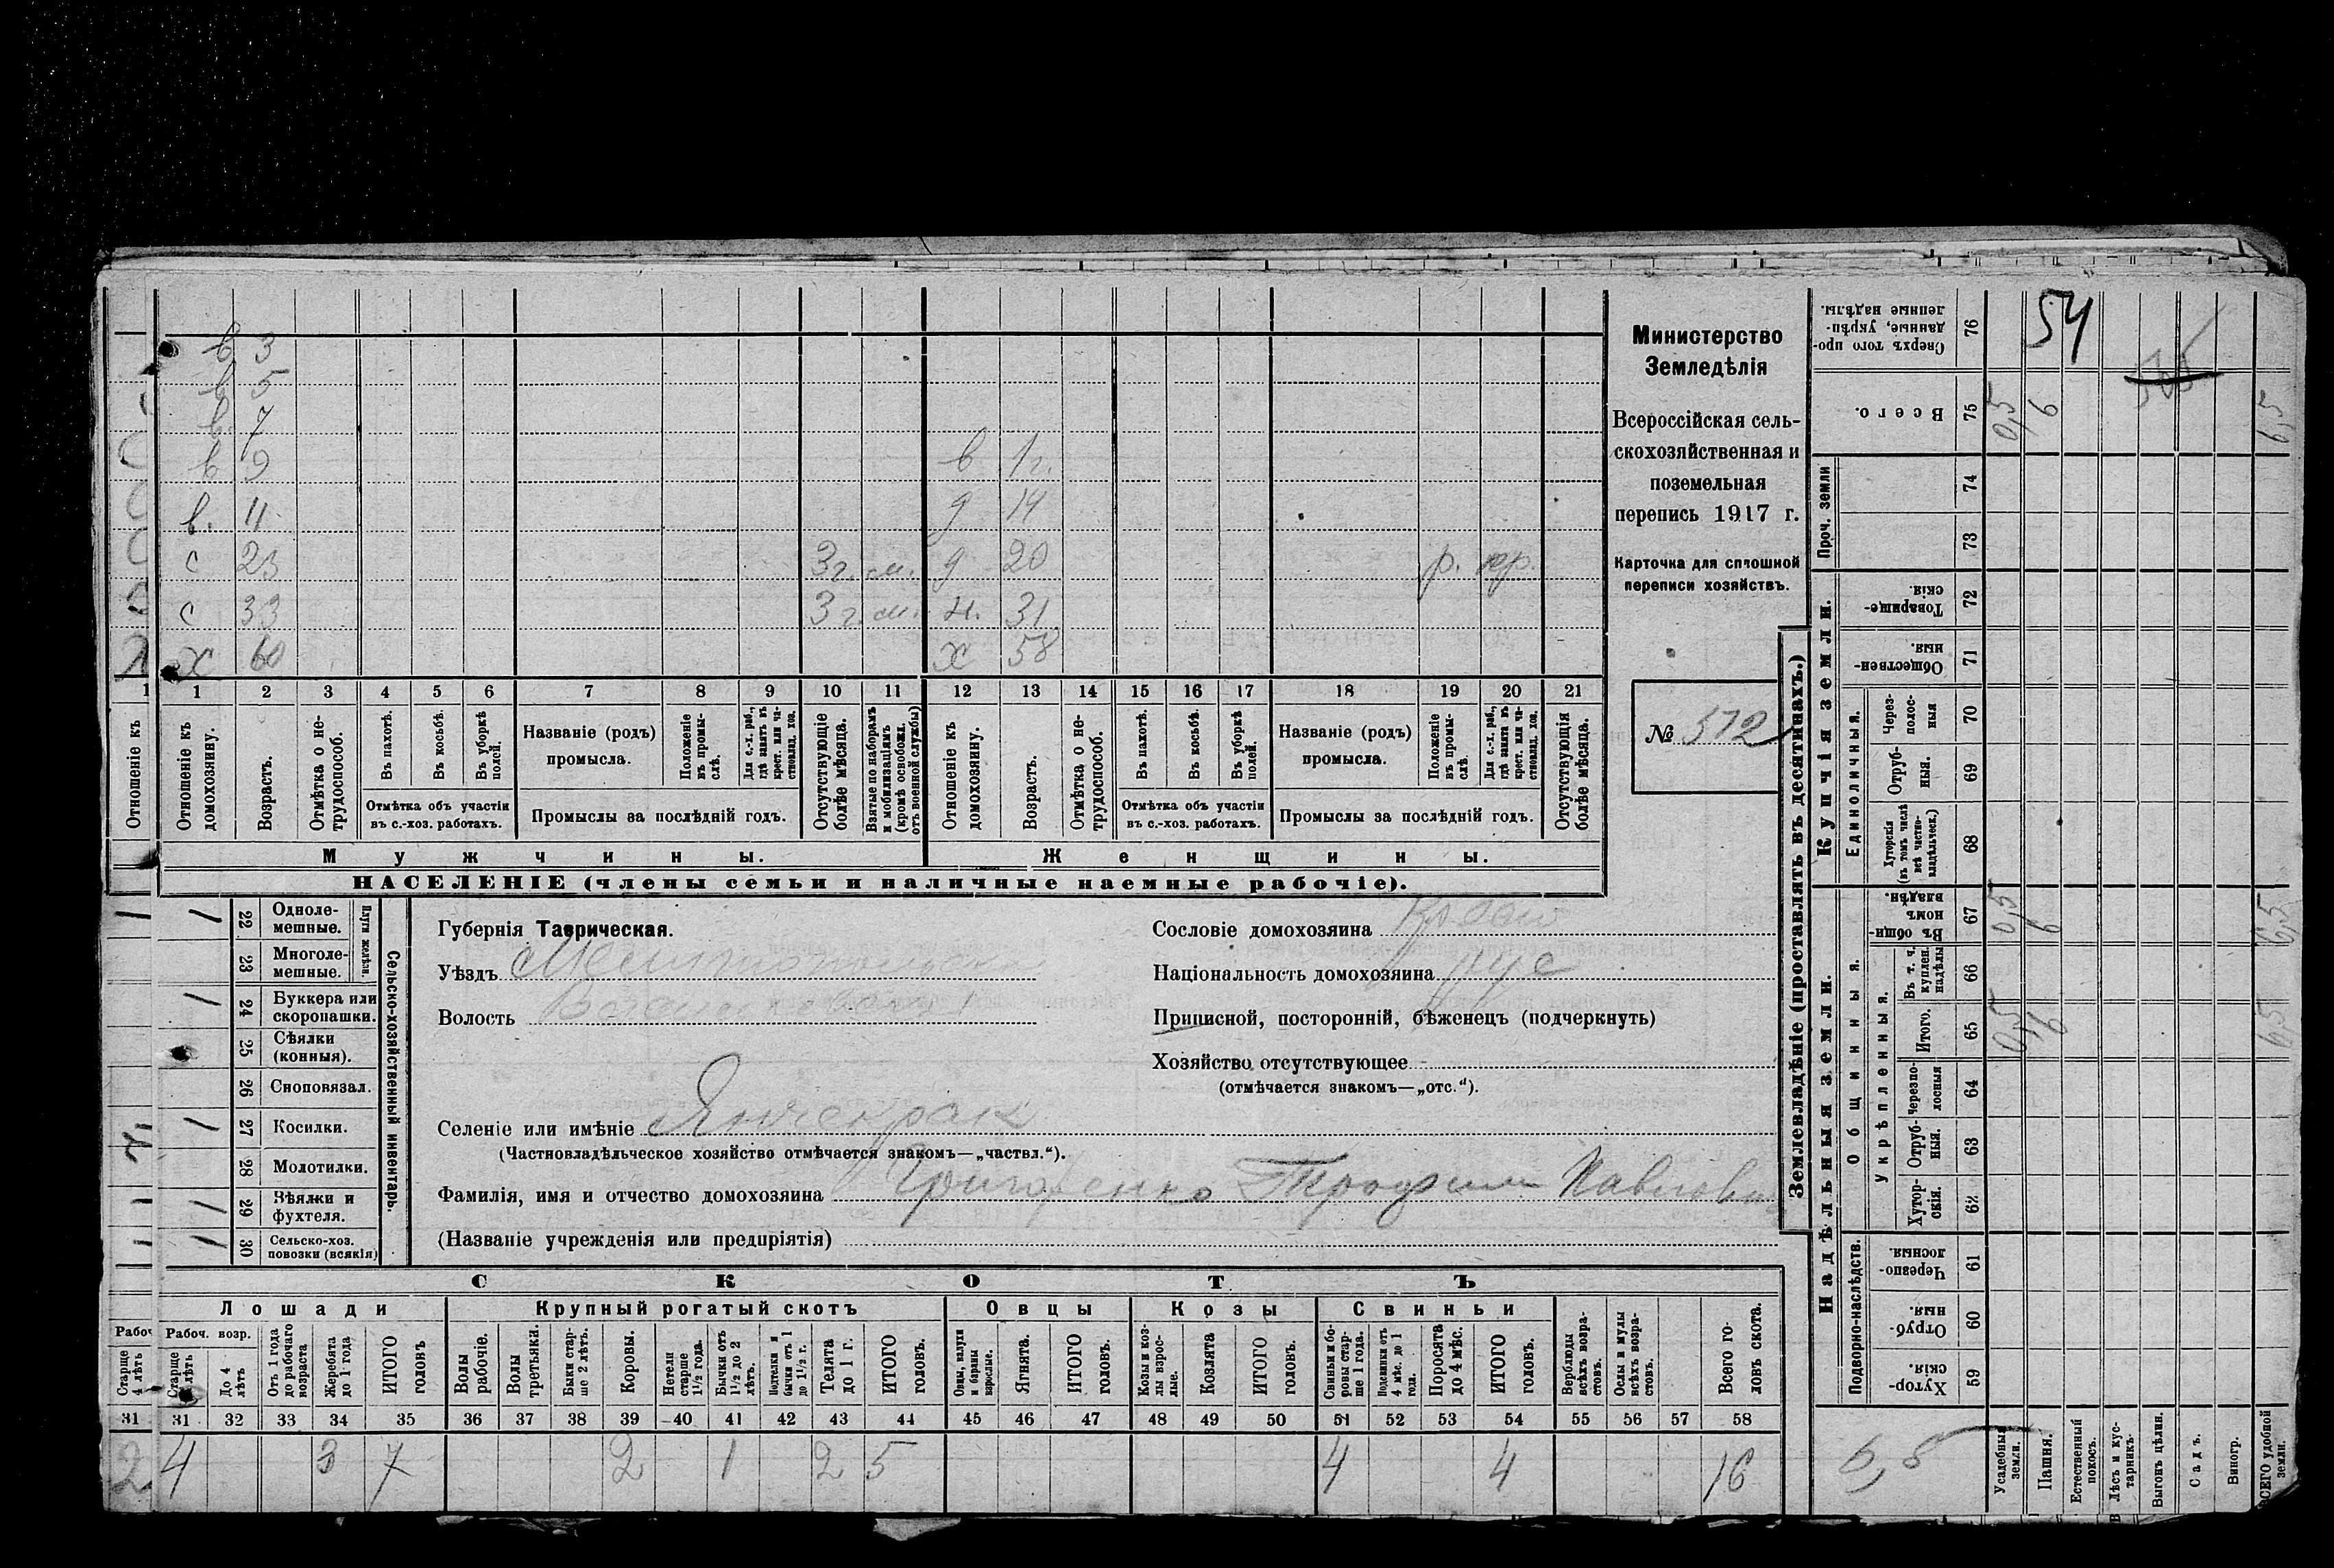 в 3
в 5
в. 7
в 9 в 1 г.
в. 11 д 14
с 23 3 г. м. д 20 р. кр.
с 33 3 г. м. н. 31
х 60 х 58
1 1 2 3 4 5 6 7 8 9 10 11 12 13 14 15 16 17 18 19 20 21
Отношеніе къ
Отношеніе къ домохозяину.
Возрастъ.
Отмѣтка о нетрудоспособ.
Въ пахотѣ.
Въ косьбѣ.
Въ уборкѣ полей.
Отмѣтка объ участіи
въ с.-хоз. работахъ.
Названіе (родъ)
промысла.
Положеніе въ промыслѣ.
Для с.-х. раб., гдѣ занятъ въ крест. или частновлад. хоз.
Промыслы за послѣдній годъ.
Отсутствующіе болѣе мѣсяца.
Взятые по наборамъ и мобилизаціямъ (кромѣ освобожд. отъ военной службы)
Отношеніе къ домохозяину.
Возрастъ.
Отмѣтка о нетрудоспособ.
Въ пахотѣ.
Въ косьбѣ.
Въ уборкѣ полей.
Отмѣтка объ участіи
въ с.-хоз. работахъ.
Названіе (родъ)
промысла.
Положеніе въ промыслѣ.
Для с.-х. раб., гдѣ занята въ крест. или частновлад. хоз.
Промыслы за послѣдній годъ.
Отсутствующія болѣе мѣсяца.
Мужчины. Женщины.
НАСЕЛЕНІЕ (члены семьи и наличные наемные рабочіе).
Министерство
Земледѣлія
Всероссійская сель-
скохозяйственная и
поземельная
перепись 1917 г.
Карточка для сплошной
переписи хозяйствъ.
№ 572
Сельско-хозяйственный инвентарь.
Плуги желѣзн.
/ 22 Одноле-
мешные.
23 Многоле-
мешные.
/ 24 Буккера или
скоропашки.
25 Сѣялки
(конныя).
26 Сноповязал.
/ 27 Косилки.
28 Молотилки.
/ 29 Вѣялки и
фухтеля.
/ 30 Сельско-хоз.
повозки (всякія)
Губернія Таврическая.
Уѣздъ Мелитопольскій
Волость
Селеніе или имѣніе Янчекрак
(Частновладѣльческое хозяйство отмѣчается знакомъ—„частвл.“).
Фамилія, имя и отчество домохозяина Григоренко Трофим Павлович
(Названіе учрежденія или предпріятія)
Сословіе домохозяина
Національность домохозяина рус
Приписной, посторонній, бѣженецъ (подчеркнуть)
Хозяйство отсутствующее -
(отмѣчается знакомъ—„отс.“).
СКОТЪ
Лошади Крупный рогатый скотъ Овцы Козы Свиньи
Рабоч. возр.
Старше 4 лѣтъ
Старше 4 лѣтъ
До 4 лѣтъ
Отъ 1 года до рабочаго возраста
Жеребята до 1 года
ИТОГО головъ
Волы рабочіе.
Волы третьяки.
Быки старше 2 лѣтъ.
Коровы.
Нетели старше 1½ года.
Бычки отъ 1½ до 2 лѣтъ.
Подтелки и бычки отъ 1 до 1½ г.
Телята до 1 г.
ИТОГО головъ.
Овцы, валухи и бараны взрослые.
Ягнята.
ИТОГО головъ.
Козы и козлы взрослые.
Козлята
ИТОГО головъ.
Свиньи и боровы старше 1 года.
Подсвинки отъ 4 мѣс. до 1 года.
Поросята до 4 мѣс.
ИТОГО головъ.
Верблюды всѣхъ возрастовъ.
Ослы и мулы всѣхъ возрастовъ.
Всего головъ скота.
31 31 32 33 34 35 36 37 38 39 40 41 42 43 44 45 46 47 48 49 50 51 52 53 54 55 56 57 58
2 4 3 7 2 1 2 5 4 4 16
Землевладѣніе (проставлять въ десятинахъ.)
Сверхъ того проданные, укрѣпленные надѣлы. 76 54
565
Всего. 75 0,5 6 6,5
Купчія земли.
Проч. земли 74
73
Товарищескія. 72
Общественныя. 71
Единоличныя.
Черезполосныя 70
Отрубныя. 69
Хуторскія (въ томъ числѣ всѣ частновладѣльческ.) 68
Надѣльныя земли.
Общинныя.
Въ общинномъ владѣн. 67 0,5 6 6,5
Укрѣпленныя.
Въ т. ч. куплен. надѣлы 66
Итого. 65 0,5 6 6,5
Черезполосныя 64
Отрубныя. 63
Хуторскія. 62
Подворно-наслѣдств.
Черезполосныя. 61
Отрубныя. 60
Хуторскія. 59
6,5
Усадебныя земли.
Пашня.
Естественный покосъ.
Лѣсъ и кустарникъ.
Выгонъ цѣлин.
Садъ.
Виногр.
ВСЕГО удобной земли.